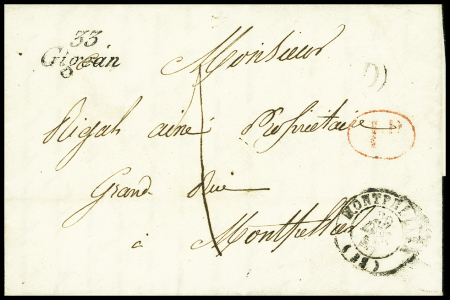 33
Gigean
Monsieur
Rigal ainé Propriétaire
Grand Rue
à Montpellier
MONTPELLIER